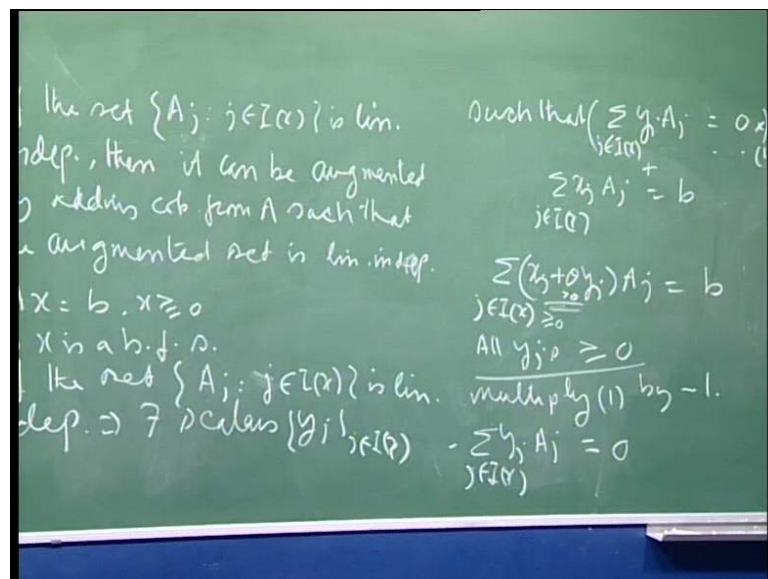 the set {A_j : j∈I(x)} is lin.
ndep., then it can be augmented
adding cols. from A such that
augmented set is lin. indep.
x = b, x ≥ 0
x is a b.f.s.
the set {A_j : j∈I(x)} is lin.
dep. ⇒ ∃ scalars {y_j}_{j∈I(x)}
such that ( Σ_{j∈I(x)} y_j A_j = 0 x
.. (1
Σ_{j∈I(x)} x_j A_j = b
+
Σ_{j∈I(x)} (x_j + θ y_j) A_j = b
≥0
All y_j's ≥ 0
multiply (1) by -1.
- Σ_{j∈I(x)} y_j A_j = 0